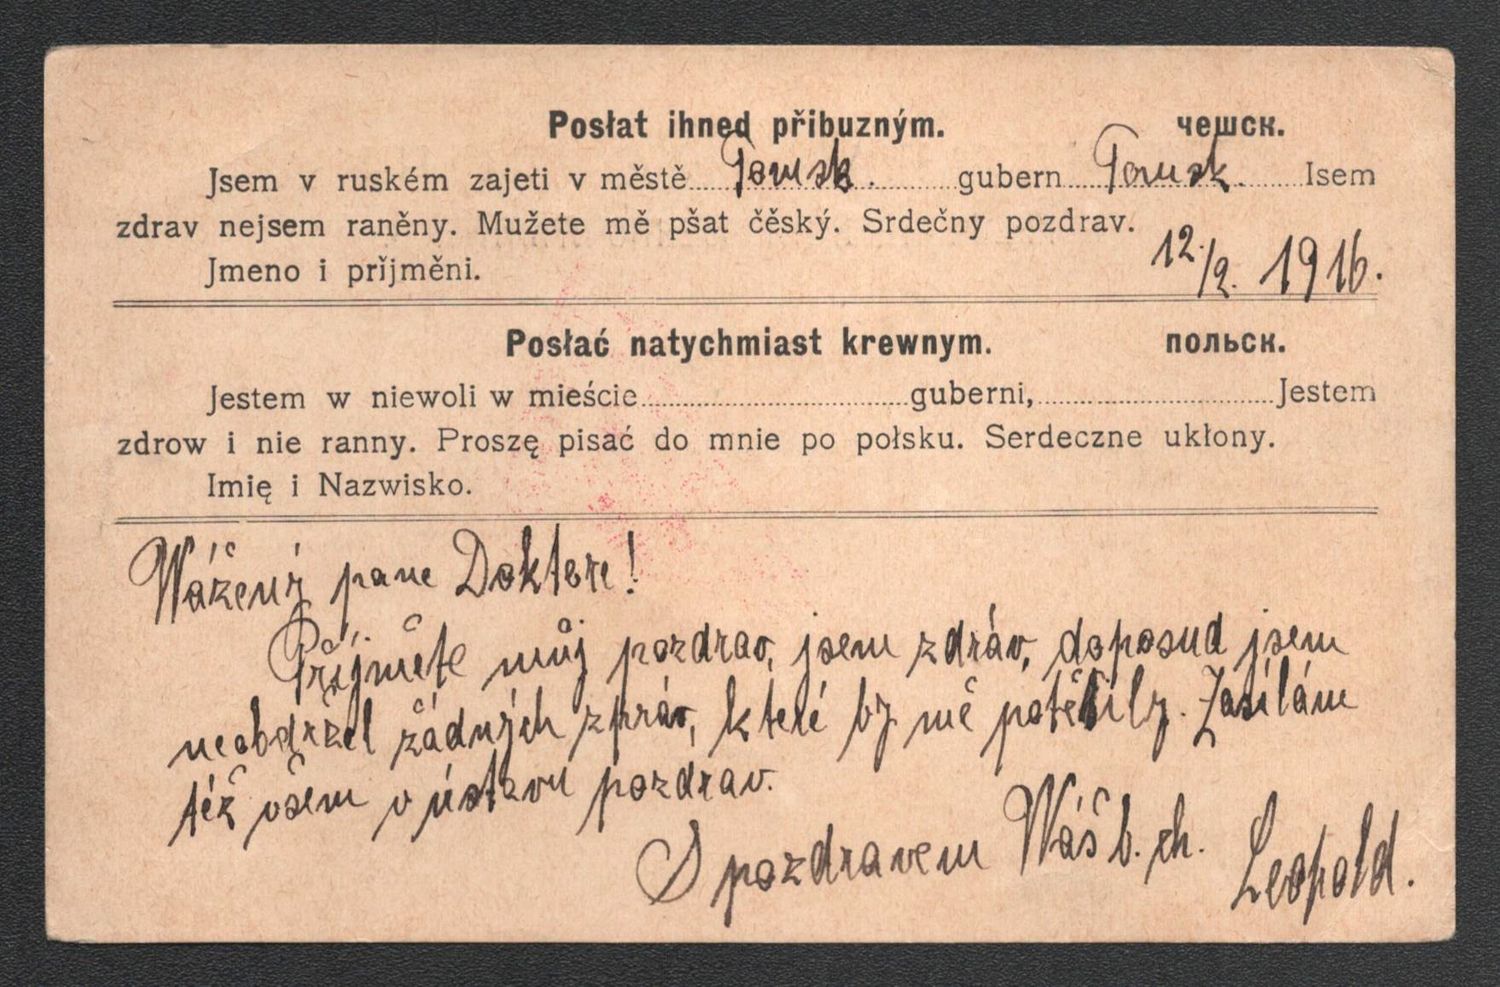 Posłat ihned přibuzným. чешск.
Jsem v ruském zajeti v městě Tomsk. gubern Tomsk. Isem
zdrav nejsem raněny. Mužete mě pšat čěský. Srdečny pozdrav.
12./2. 1916.
Jmeno i prǐjměni.
Posłać natychmiast krewnym. польск.
Jestem w niewoli w mieście guberni, Jestem
zdrow i nie ranny. Proszę pisać do mnie po połsku. Serdeczne ukłony.
Imię i Nazwisko.
Vážený pane Doktore!
Přijměte můj pozdrav, jsem zdráv, doposud jsem
neobdržel žádných zpráv, které by mě potěšily. Zasílám
též všem v ústavu pozdrav.
S pozdravem Váš b. ch. Leopold.